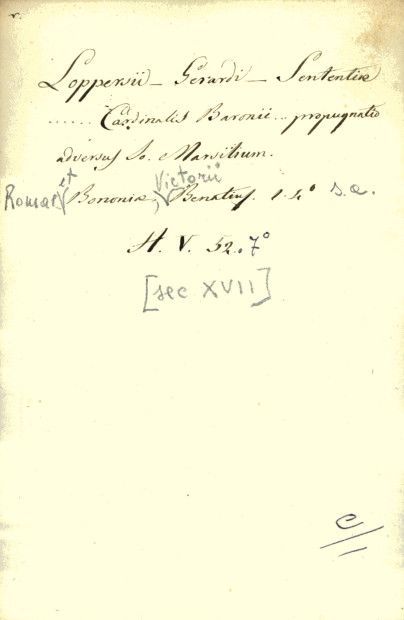 Loppersii - Gerardi - Sententiæ
...... Cardinalis Baronii... propugnatio
adversus Jo. Marsilium.
Romae et Bononiæ, Victorii Benatius. 1. 4° s.a.
H. V. 52. 7°
[sec XVII]